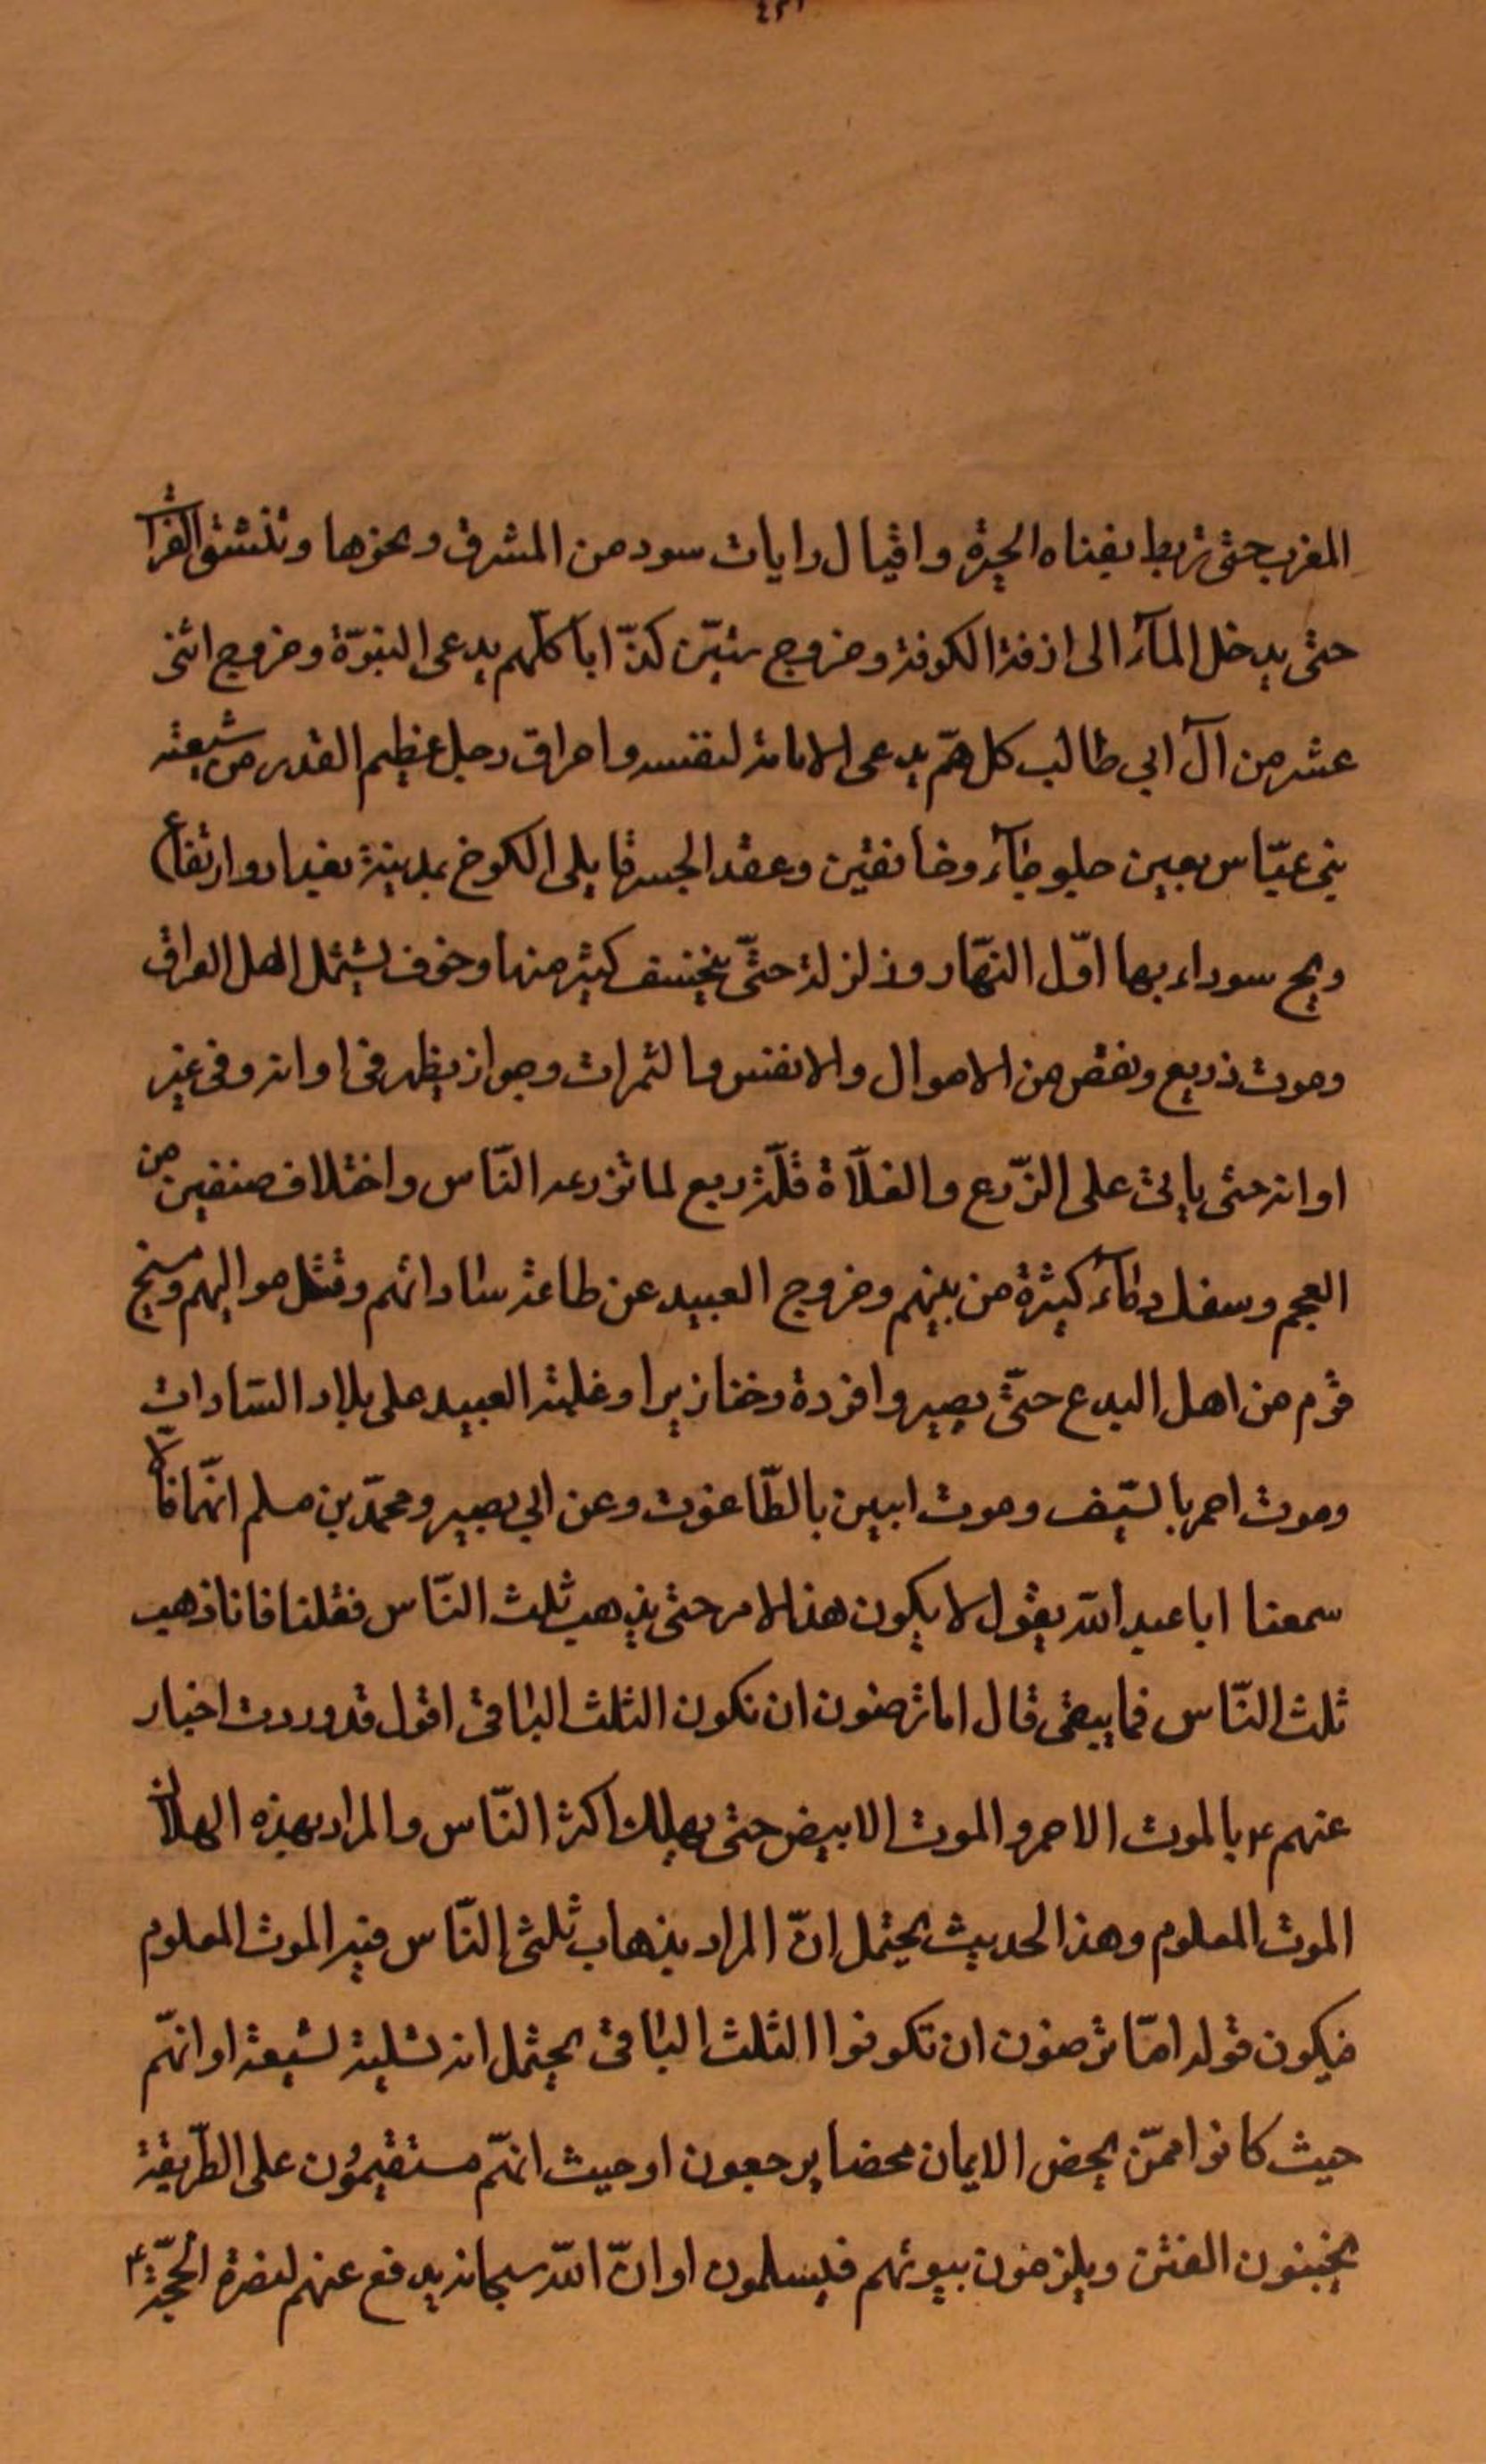 ٤٢١
المغرب حتى تربط بفناه الحيرة واقبال رايات سود من المشرق ونحوها وتنشق الفرات
حتى يدخل المآء الى ازقة الكوفة وخروج ستين كذّابا كلّهم يدعى النبوّة وخروج اثنى
عشر من آل ابي طالب كلهمّ يدعى الامامة لنفسه واحراق رجل عظيم القدر من شيعته
بنى عبّاس بعين جلوخآء وخانقين وعقد الجسر مما يلى الكوخ بمدينة بغداد وارتفاع
ويح سوداء بها اوّل النّهار وزلزلة حتّى ينخسف كثير منها وخوف يشمل اهل العراق
وموت ذريع ونقص من الاموال والانفس والثمرات وجراز يظهر في اوانه وفى غير
اوانه حتى ياتى على الزّرع والغلّاة قلّة ريع لما تزرعه النّاس واختلاف صنفين من
العجم وسفك دمآء كثيرة من بينهم وخروج العبيد عن طاعة ساداتهم وقتل مواليهم ومسخ
قوم من اهل البدع حتّى يصيروا قردة وخنازيرا وغلبة العبيد على بلاد السّادات
وموت احمر بالسّيف وموت ابيض بالطّاعون وعن ابي بصير ومحمّد بن مسلم انّهما قالا
سمعنا ابا عبد اللّه يقول لا يكون هذا الامر حتى يذهب ثلث النّاس فقلنا فاذا ذهب
ثلث النّاس فما يبقى قال اما ترضون ان نكون الثلث الباقى اقول قد وردت اخبار
عنهم ع بالموت الاحمر والموت الابيض حتى يهلك اكثر النّاس والمراد بهذه الهلاك
الموت المعلوم وهذا الحديث يحتمل انّ المراد بذهاب ثلثى النّاس فيه الموت المعلوم
فيكون قوله امّا ترضون ان تكونوا الثلث الباقى يحتمل انه تسلية لشيعة او انهّم
حيث كانوا ممّن يحض الايمان محضا يرجعون او حيث انهّم مستقيمون على الطّريقة
يجنبون الفتن ويلزمون بيوتهم فيسلمون او انّ اللّه سبحانه يدفع عنهم لنصرة الحجّة ع